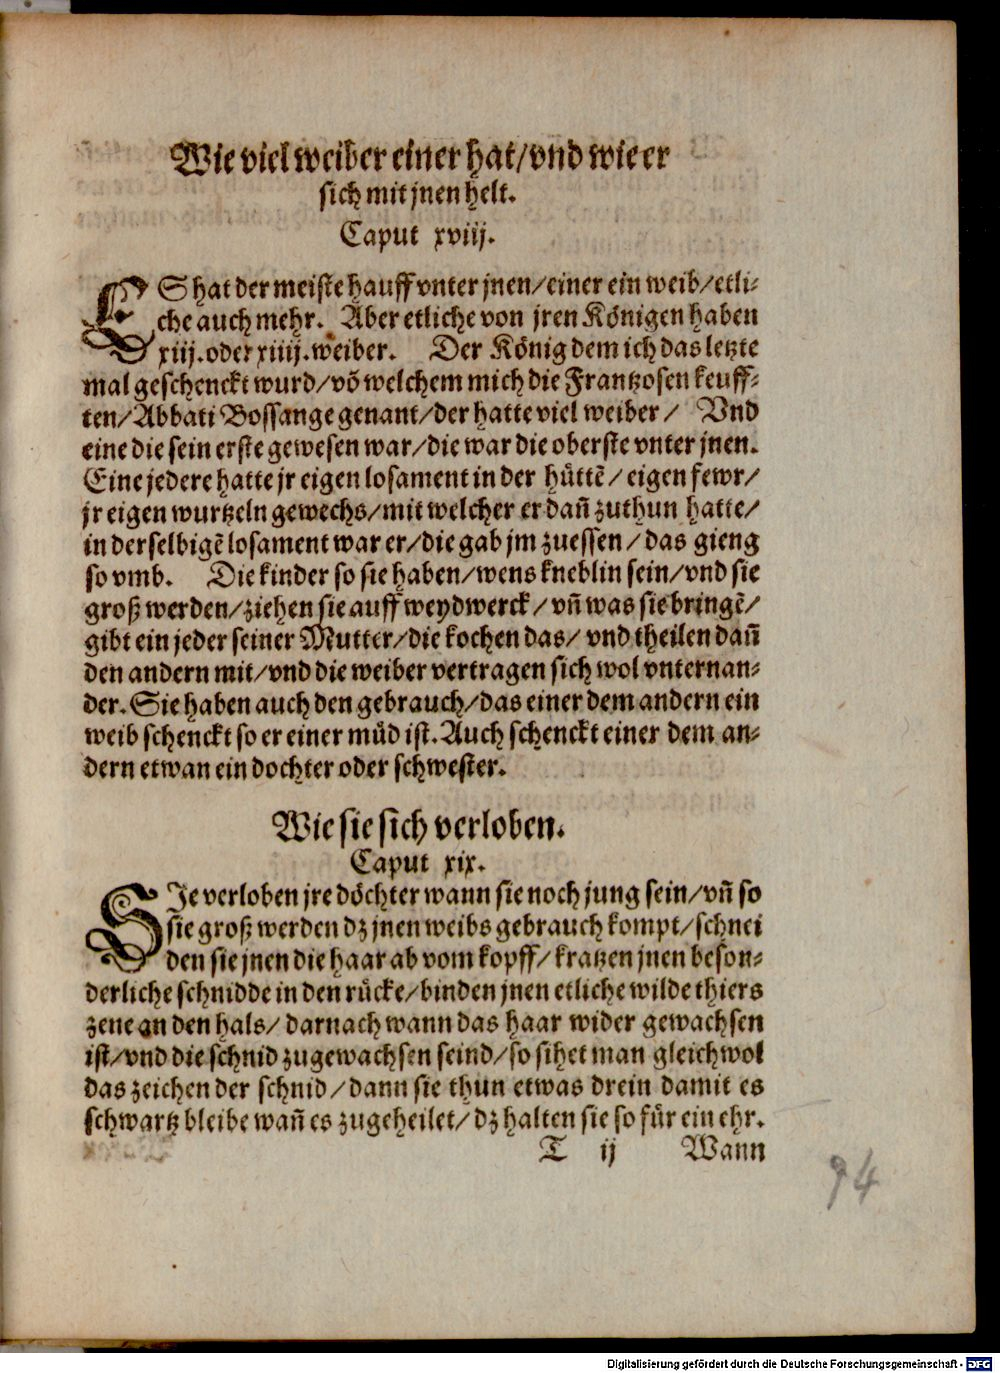 Wie viel weiber einer hat/vnd wie er
sich mit jnen helt.
Caput xviij.
ES hat der meiste hauff vnter jnen/einer ein weib/etli-
che auch mehr. Aber etliche von jren Königen haben
xiij. oder xiiij. weiber. Der König dem ich das letzte
mal geschenckt wurd/võ welchem mich die Frantzosen keuff-
ten/Abbati Bossange genant/der hatte viel weiber/ Vnd
eine die sein erste gewesen war/die war die oberste vnter jnen.
Eine jedere hatte jr eigen losament in der hüttẽ/ eigen fewr/
jr eigen wurtzeln gewechs/mit welcher er dañ zuthun hatte/
in derselbigẽ losament war er/die gab jm zuessen/das gieng
so vmb. Die kinder so sie haben/wens kneblin sein/vnd sie
groß werden/ziehen sie auff weydwerck/vñ was sie bringẽ/
gibt ein jeder seiner Mutter/die kochen das/ vnd theilen dañ
den andern mit/vnd die weiber vertragen sich wol vnternan-
der. Sie haben auch den gebrauch/das einer dem andern ein
weib schenckt so er einer müd ist. Auch schenckt einer dem an-
dern etwan ein dochter oder schwester.
Wie sie sich verloben.
Caput xix.
SIe verloben jre döchter wann sie noch jung sein/vñ so
sie groß werden dz jnen weibs gebrauch kompt/schnei
den sie jnen die haar ab vom kopff/kratzen jnen beson-
derliche schnidde in den rücke/binden jnen etliche wilde thiers
zene an den hals/ darnach wann das haar wider gewachsen
ist/vnd die schnid zugewachsen seind/so sihet man gleichwol
das zeichen der schnid/dann sie thun etwas drein damit es
schwartz bleibe wañ es zugeheilet/dz halten sie so für ein ehr.
T ij Wann
94
Digitalisierung gefördert durch die Deutsche Forschungsgemeinschaft - DFG